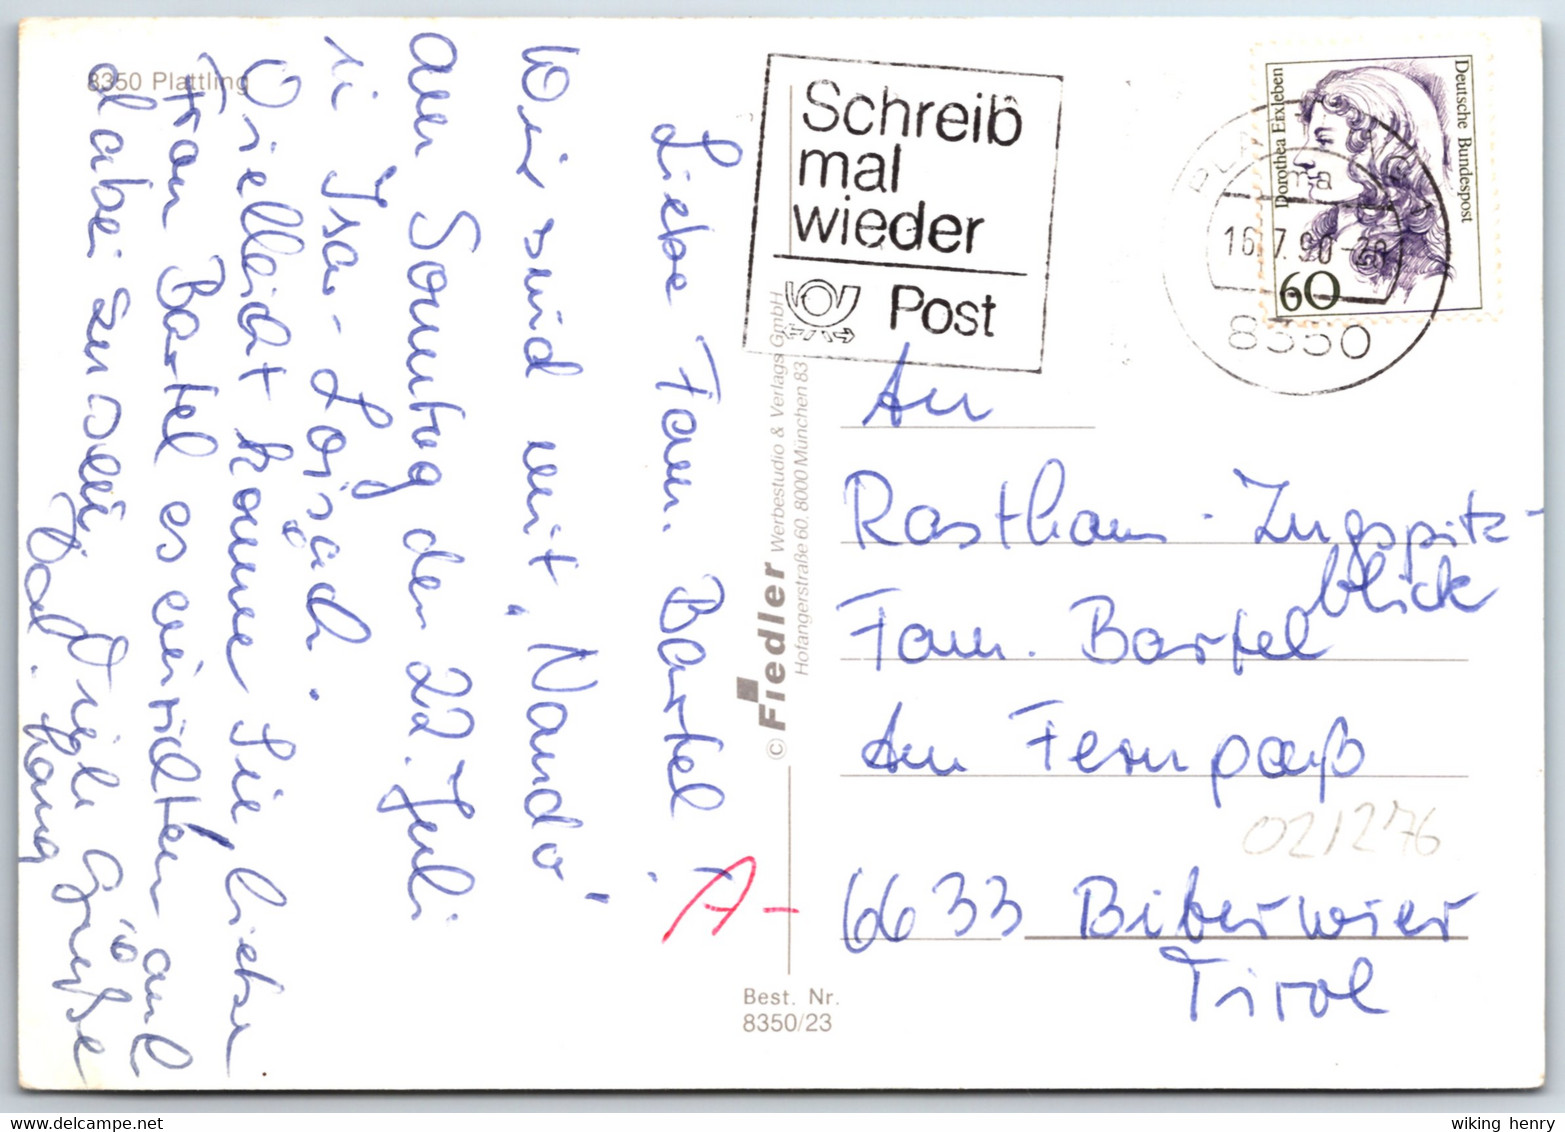 8350 Plattling
Liebe Fam. Bartel!
Wir sind mit "Nando"
am Sonntag den 22. Juli
in Isar-Loisach.
Vielleicht können Sie liebe
Frau Bartel es einrichten auch
dabei zu sein. Viele Grüße
Schreib
mal
wieder
Post
Deutsche Bundespost
Dorothea Erxleben
60
16.7.90-20
ma
8350
© Fiedler Werbestudio & Verlags GmbH
Hofangerstraße 60, 8000 München 83
An
Rasthaus-Zugspitz-
blick
Fam. Bartel
Am Fernpaß
021276
A-
6633 Biberwier
Tirol
Best. Nr.
8350/23
wiking henry